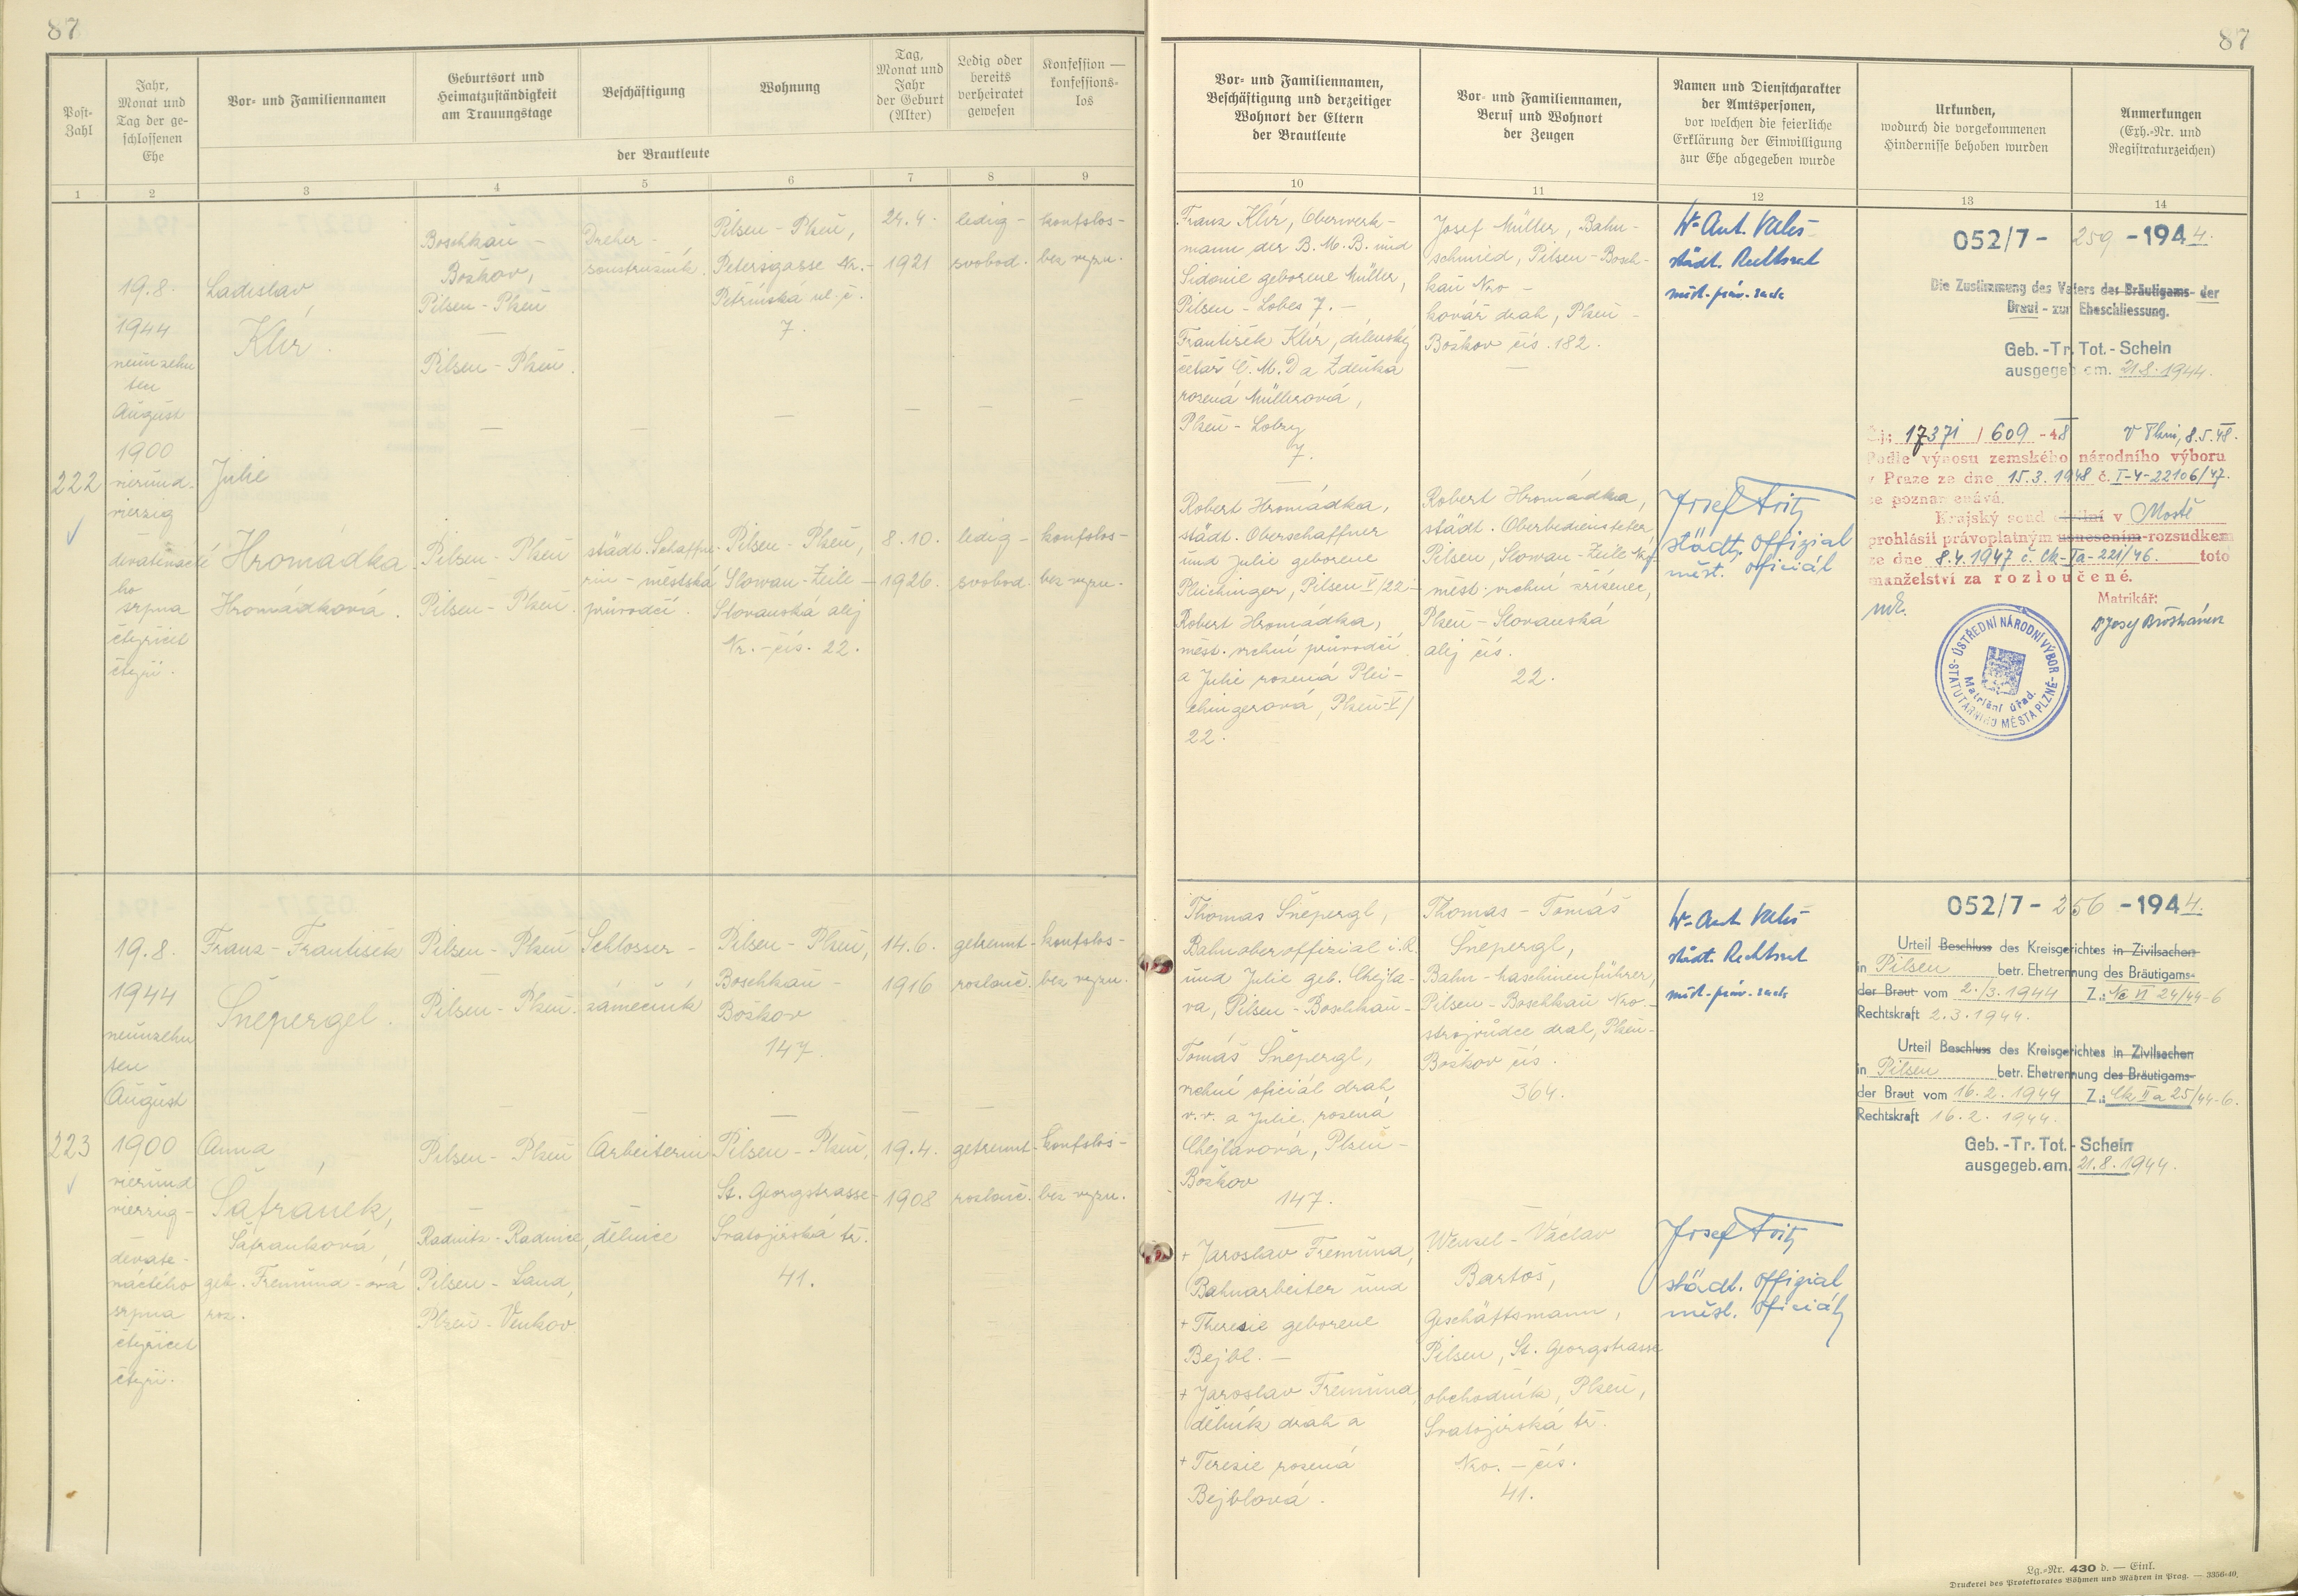 87
87
Post-
Zahl
Jahr,
Monat und
Tag der ge-
schlossenen
Ehe
Vor- und Familiennamen
Geburtsort und
Heimatzuständigkeit
am Trauungstage
Beschäftigung
Wohnung
Tag,
Monat und
Jahr
der Geburt
(Alter)
Ledig oder
bereits
verheiratet
gewesen
Konfession —
konfessions-
los
der Brautleute
1
2
3
4
5
6
7
8
9
Vor- und Familiennamen,
Beschäftigung und derzeitiger
Wohnort der Eltern
der Brautleute
Vor- und Familiennamen,
Beruf und Wohnort
der Zeugen
Namen und Dienstcharakter
der Amtspersonen,
vor welchen die feierliche
Erklärung der Einwilligung
zur Ehe abgegeben wurde
Urkunden,
wodurch die vorgekommenen
Hindernisse behoben wurden
Anmerkungen
(Exh.-Nr. und
Registraturzeichen)
10
11
12
13
14
222
19.8.
1944
neunzehn
ten
August
1900
vierund-
vierzig
devatenácté
ho
srpna
čtyřicet
čtyři.
Ladislav
Klír.
Boschkau -
Božkov,
Pilsen - Plzeň
—
Pilsen - Plzeň.
Dreher -
soustružník.
Pilsen - Plzeň,
Petersgasse Nr. -
Petřínská ul. č.
7.
24.4.
1921
ledig -
svobod.
konfslos -
bez vyzn.
Julie
Hromádka
Hromádková.
Pilsen - Plzeň
Pilsen - Plzeň.
städt. Schaffne-
rin - městská
průvodčí.
Pilsen - Plzeň,
Slowan-Zeile -
Slovanská alej
Nr. - čís. 22.
8.10.
1926.
ledig -
svobod.
konfslos -
bez vyzn.
Franz Klír, Oberwerk-
mann der B.M.B. und
Sidonie geborene Müller,
Pilsen - Lobes 7. -
František Klír, dílenský
četař Č.M.D a Zdeňka
rozená Müllerová,
Plzeň - Lobzy
7.
Robert Hromádka,
städt. Oberschaffner
und Julie geborene
Pleichinger, Pilsen V/22 -
Robert Hromádka,
měst. vrchní průvodčí
a Julie rozená Plei-
chingerová, Plzeň-V/
22.
Josef Müller, Bahn-
schmied, Pilsen - Bosch-
kau Nro -
kovář drah, Plzeň -
Božkov čís. 182.
Robert Hromádka,
städt. Oberbediensteter,
Pilsen, Slowan-Zeile Nr.
měst. vrchní zřízenec,
Plzeň - Slovanská
alej čís.
22.
Dr. Ant. Valeš
städt. Rechtsrat
měst. práv. rada
Josef Fritz
städt. Offizial
měst. oficiál
052/7 - 259 - 1944.
Die Zustimmung des Vaters des Bräutigams- der
Braut - zur Eheschliessung.
Geb. -Tr. Tot. - Schein
ausgegeb am. 21.8.1944.
Č.j.: 17371 / 609 - 48 V Plzni, 8.5.48.
Podle výnosu zemského národního výboru
v Praze ze dne 15.3.1948 č. I-4-22106/47.
se poznamenává,
Krajský soud civilní v Mostě
prohlásil právoplatným usnesením-rozsudkem
ze dne 8.4.1947 č. Ck-Ia-221/46. toto
manželství za rozloučené.
Matrikář:
ÚSTŘEDNÍ NÁRODNÍ VÝBOR
STATUTÁRNÍHO MĚSTA PLZNĚ
Matriční úřad.
223
19.8.
1944
neunzehn
ten
August
1900
vierund
vierzig -
devate-
náctého
srpna
čtyřicet
čtyři.
Franz - František
Šnepergl.
Pilsen - Plzeň
Pilsen - Plzeň.
Schlosser -
zámečník
Pilsen - Plzeň,
Boschkau -
Božkov
147.
14.6.
1916
getrennt -
rozlouč.
konfslos -
bez vyzn.
Anna
Šafránek,
Šafránková,
geb. Fremuna - ová
roz.
Pilsen - Plzeň
Radnitz - Radnice,
Pilsen - Land,
Plzeň - Venkov
Arbeiterin
dělnice
Pilsen - Plzeň,
St. Georgstrasse -
Svatojirská tř.
41.
19.4.
1908
getrennt -
rozlouč.
konfslos -
bez vyzn.
Thomas Šnepergl,
Bahnoberoffizial i.R.
und Julie geb. Chejla-
va, Pilsen - Boschkau -
Tomáš Šnepergl,
vrchní oficiál drah
v.v. a Julie, rozená
Chejlavová, Plzeň -
Božkov
147.
+ Jaroslav Fremuna,
Bahnarbeiter und
+ Theresie geborene
Bejbl. -
+ Jaroslav Fremuna,
dělník drah a
+ Terezie rozená
Bejblová.
Thomas - Tomáš
Šnepergl,
Bahn-Maschinenführer,
Pilsen - Boschkau Nro -
strojvůdce drah, Plzeň -
Božkov čís.
364.
Wenzel - Václav
Bartoš,
Geschäftsmann,
Pilsen, St. Georgstrasse
obchodník, Plzeň,
Svatojirská tř.
Nro. - čís.
41.
Dr. Ant. Valeš
städt. Rechtsrat
měst. práv. rada
Josef Fritz
städt. Offizial
měst. oficiál
052/7 - 256 - 1944.
Urteil Beschluss des Kreisgerichtes in Zivilsachen
in Pilsen betr. Ehetrennung des Bräutigams-
der Braut vom 2./3. 1944 Z.: Nc VI 24/44-6
Rechtskraft 2.3.1944.
Urteil Beschluss des Kreisgerichtes in Zivilsachen
in Pilsen betr. Ehetrennung des Bräutigams-
der Braut vom 16.2.1944 Z.: Ck II a 25/44-6.
Rechtskraft 16.2.1944.
Geb. -Tr. Tot. - Schein
ausgegeb.am. 21.8.1944.
Lg.-Nr. 430 d. — Einl.
Druckerei des Protektorates Böhmen und Mähren in Prag. — 3356-40.